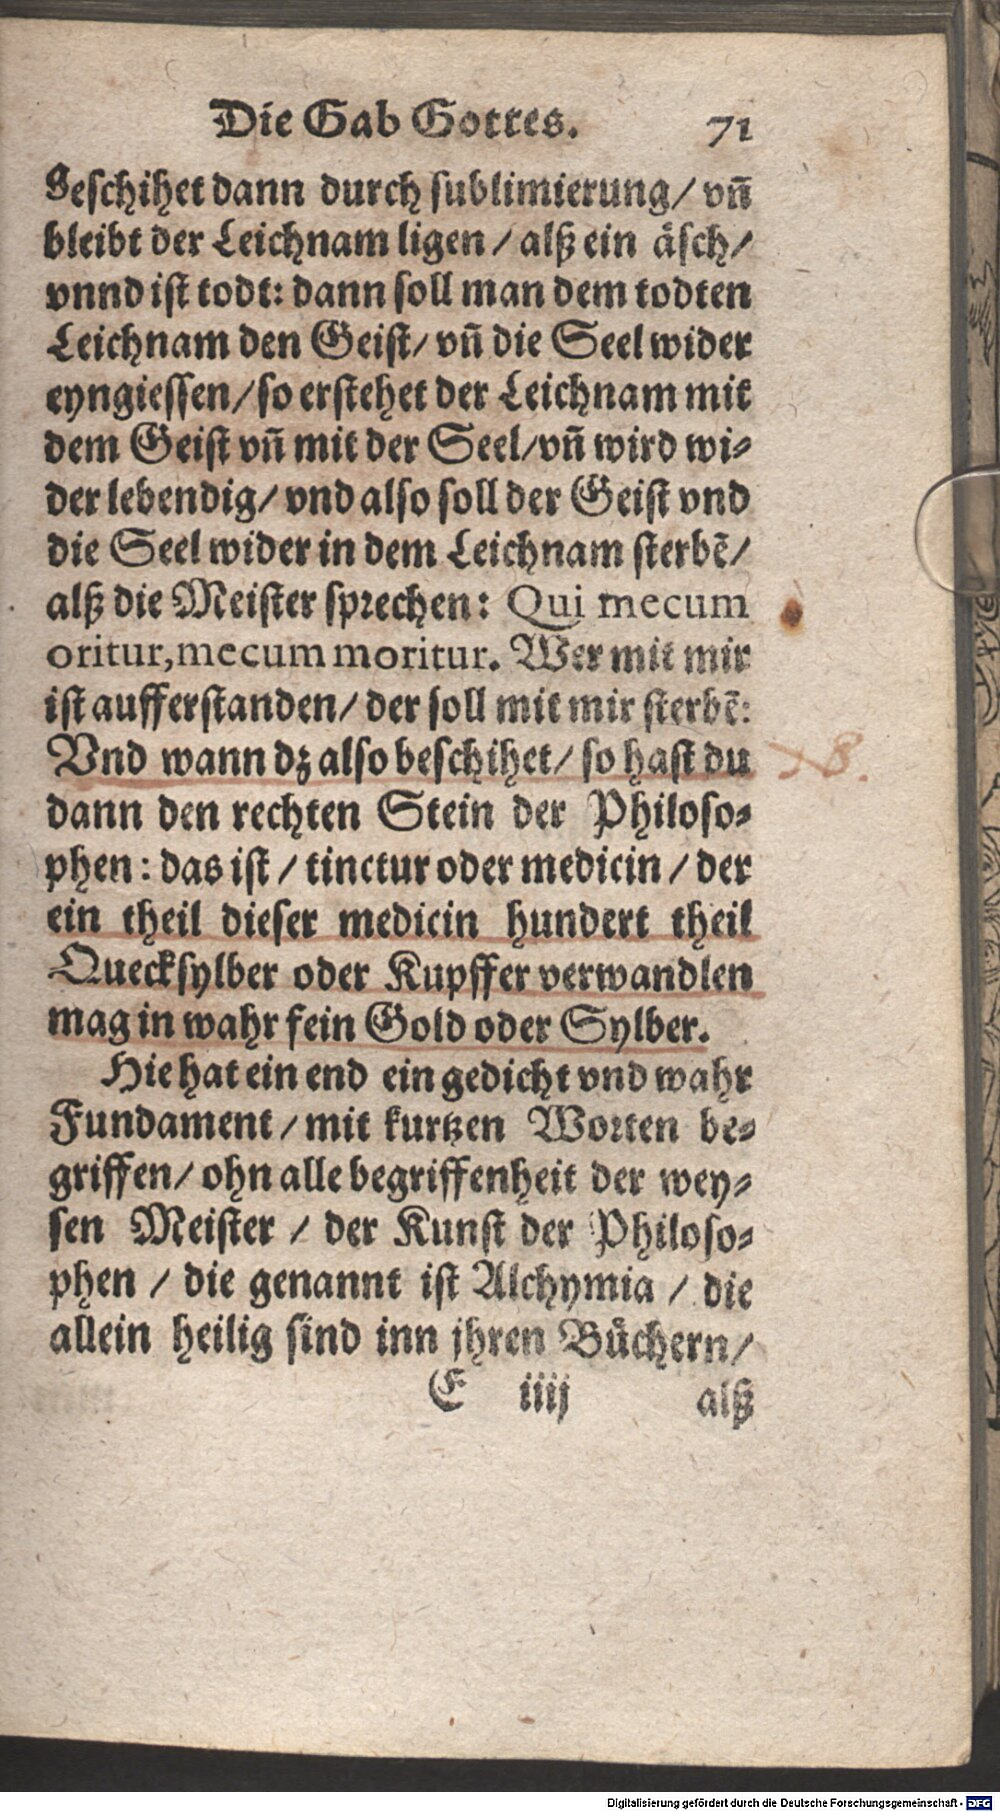 Die Gab Gottes. 71
Geschihet dann durch sublimierung/ vñ
bleibt der Leichnam ligen / alß ein äsch/
vnnd ist todt: dann soll man dem todten
Leichnam den Geist/ vñ die Seel wider
eyngiessen/ so erstehet der Leichnam mit
dem Geist vñ mit der Seel/ vñ wird wi-
der lebendig/ vnd also soll der Geist vnd
die Seel wider in dem Leichnam sterbẽ/
alß die Meister sprechen: Qui mecum
oritur, mecum moritur. Wer mit mir
ist aufferstanden/ der soll mit mir sterbẽ:
Vnd wann dz also beschihet/ so hast du
dann den rechten Stein der Philoso-
phen: das ist / tinctur oder medicin / der
ein theil dieser medicin hundert theil
Quecksylber oder Kupffer verwandlen
mag in wahr fein Gold oder Sylber.
Hie hat ein end ein gedicht vnd wahr
Fundament / mit kurtzen Worten be-
griffen/ ohn alle begriffenheit der wey-
sen Meister / der Kunst der Philoso-
phen / die genannt ist Alchymia / die
allein heilig sind inn jhren Bůchern/
E iiij alß
Digitalisierung gefördert durch die Deutsche Forschungsgemeinschaft - DFG